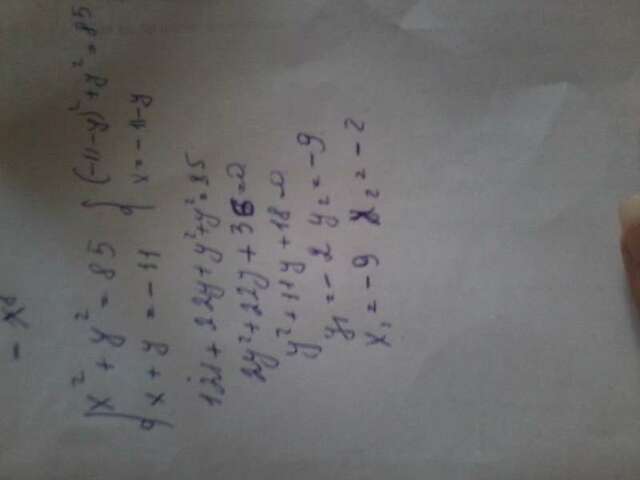 - x⁸
{x² + y² = 85 {(-11-y)² + y² = 85
x + y = -11 x = -11-y
121 + 22y + y² + y² = 85
2y² + 22y + 36 = 0
y² + 11y + 18 = 0
y₁ = -2 y₂ = -9
x₁ = -9 x₂ = -2